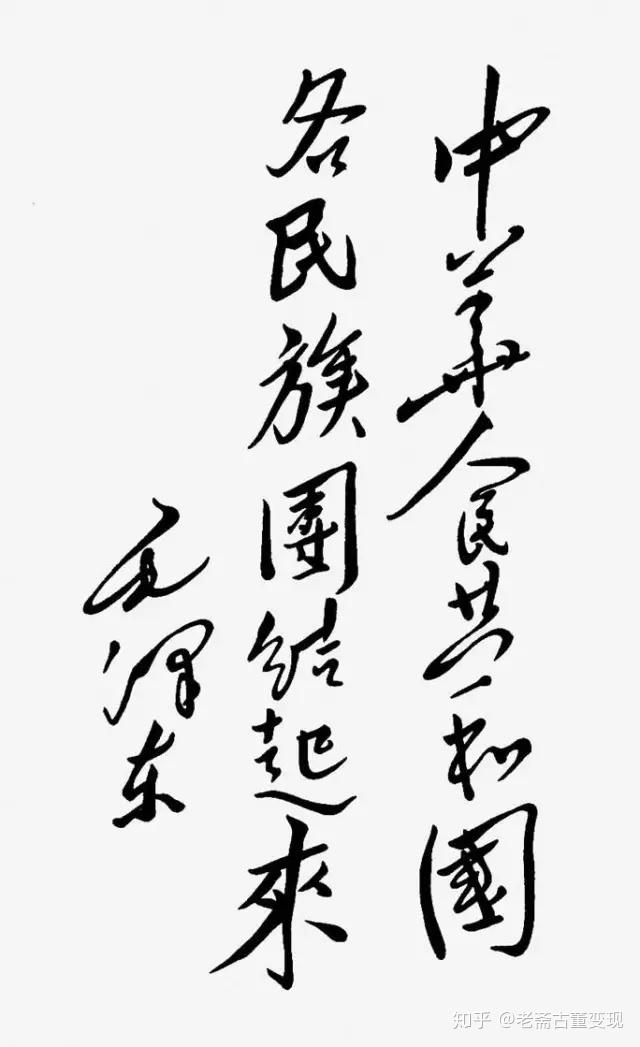 中華人民共和國
各民族團結起來
毛泽东
知乎 @老斋古董变现